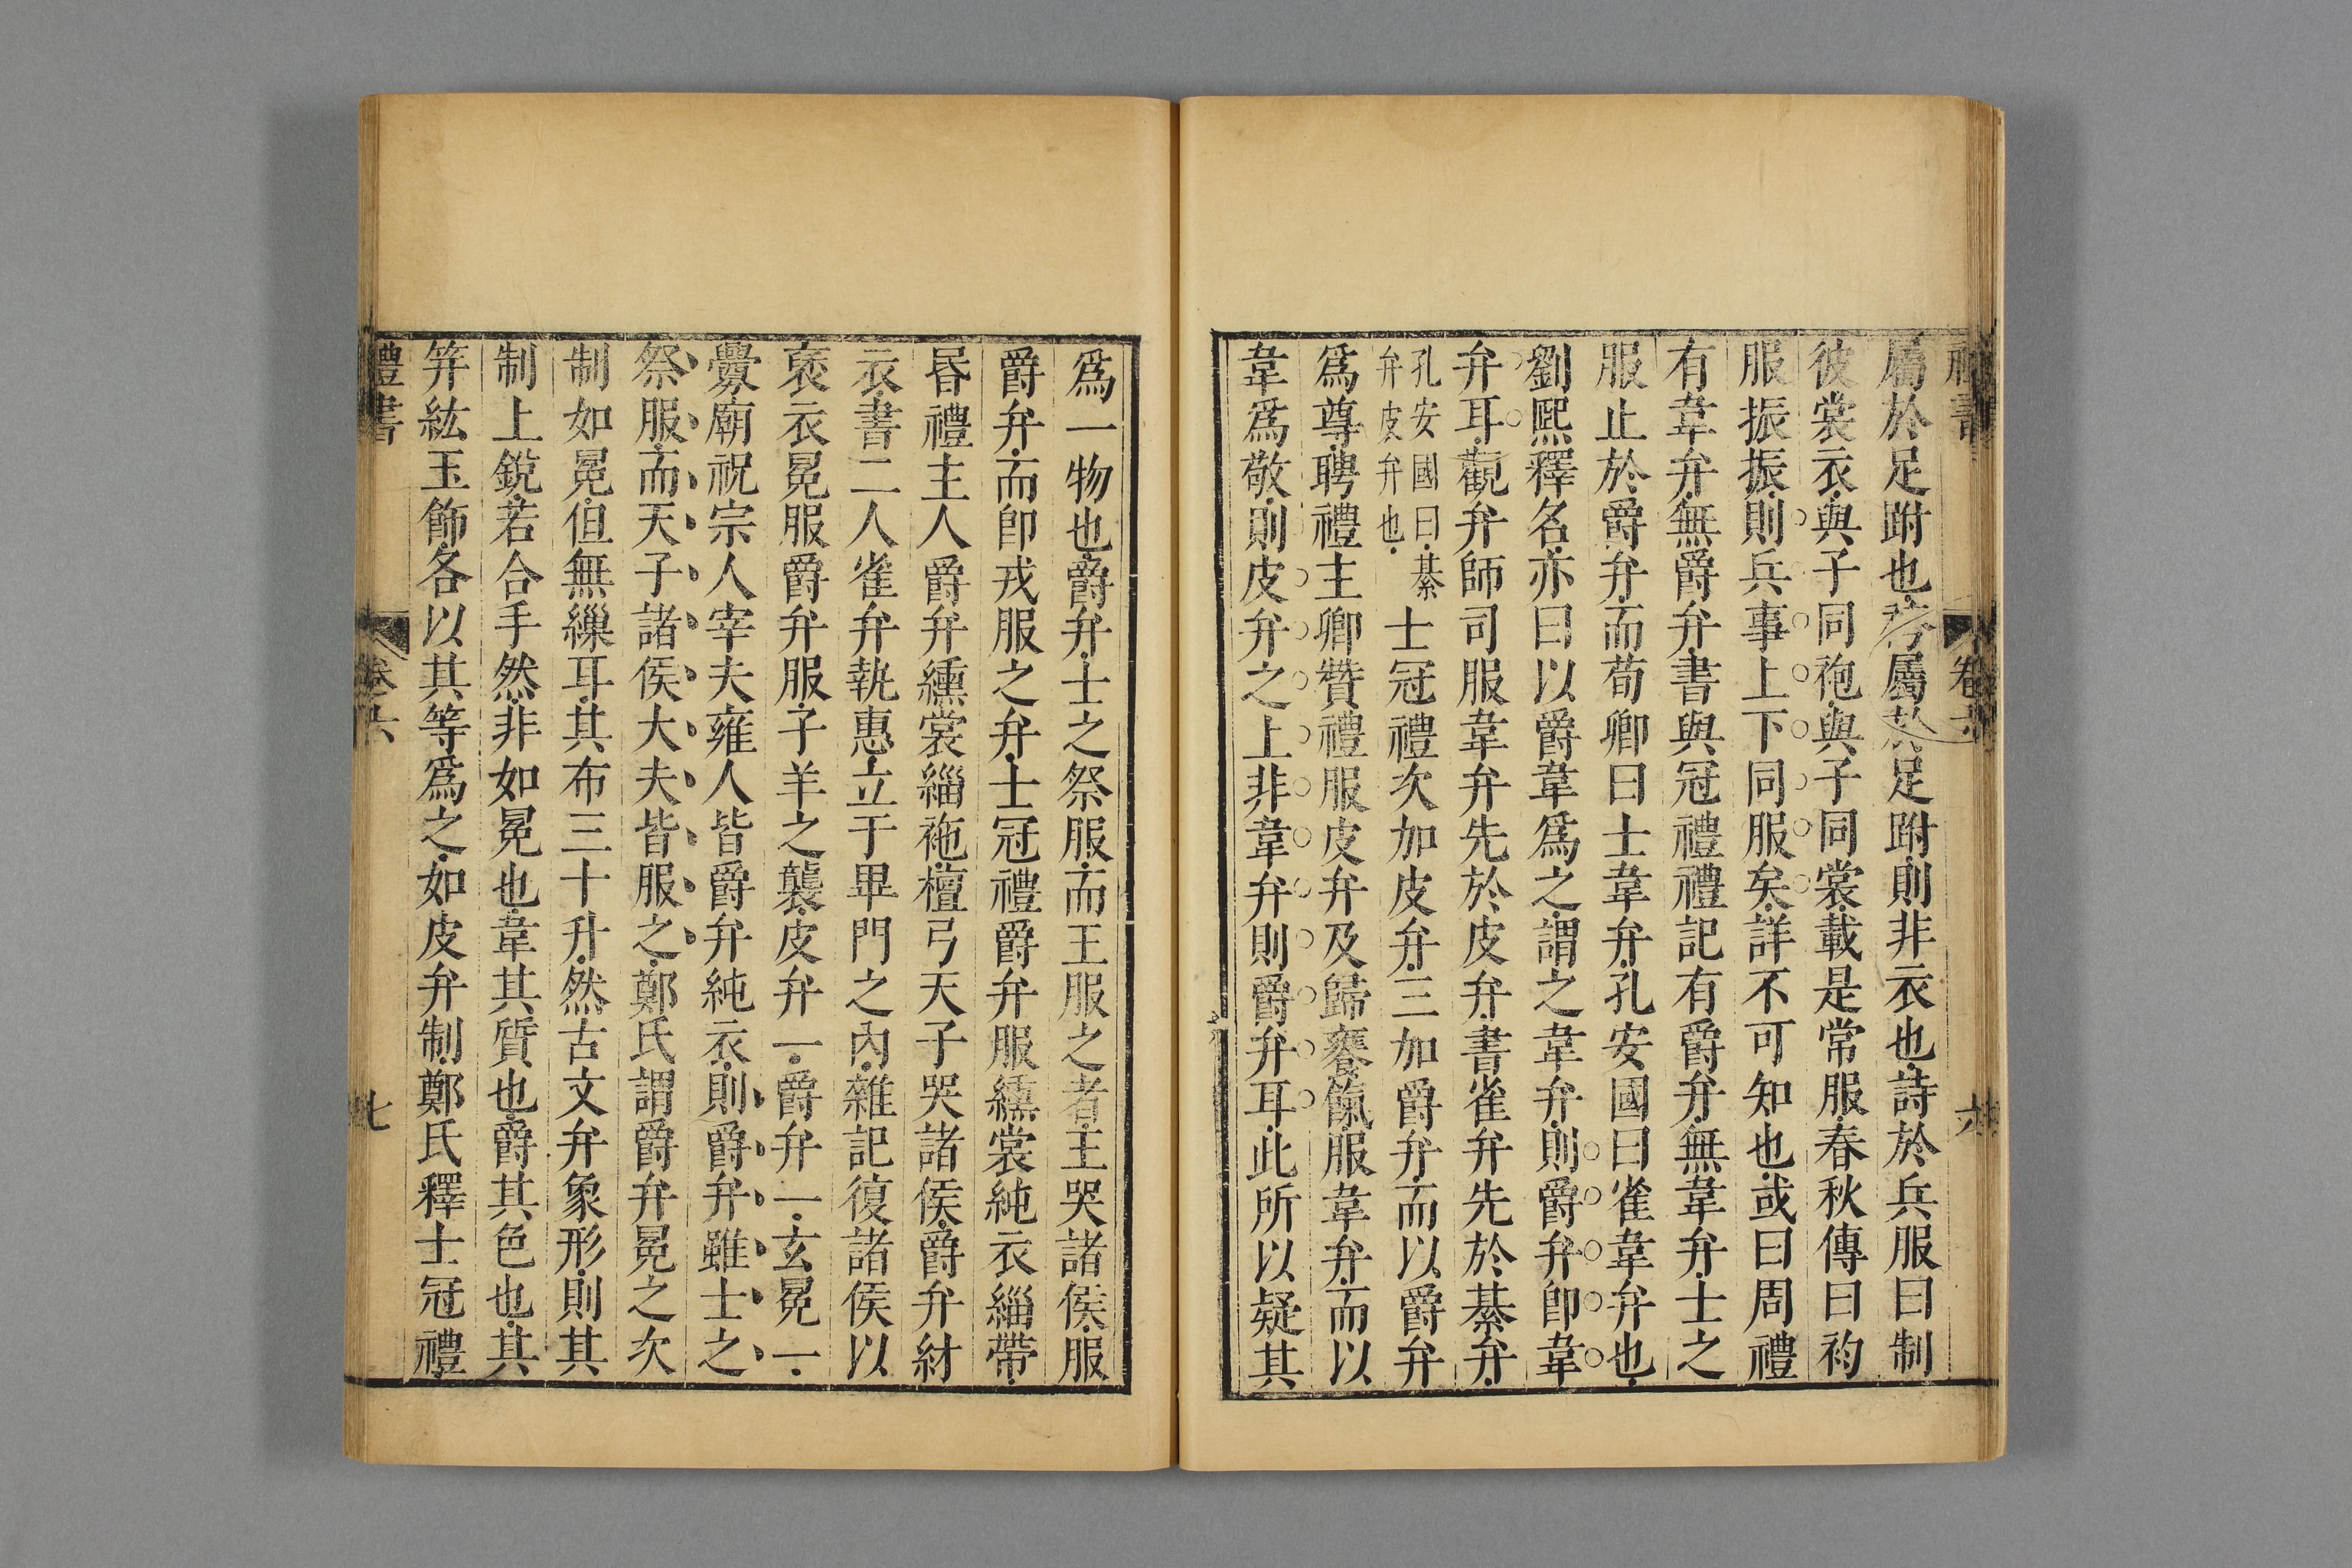 禮書 卷六 六
屬於足跗也若屬於足跗則非衣也詩於兵服曰制
彼裳衣與子同袍與子同裳載是常服春秋傳曰袀
服振振則兵事上下同服矣詳不可知也或曰周禮
有韋弁無爵弁書與冠禮禮記有爵弁無韋弁士之
服止於爵弁而荀卿曰士韋弁孔安國曰雀韋弁也
劉熙釋名亦曰以爵韋爲之謂之韋弁則爵弁卽韋
弁耳觀弁師司服韋弁先於皮弁書雀弁先於綦弁
孔安國曰綦
弁皮弁也
士冠禮次加皮弁三加爵弁而以爵弁
爲尊聘禮主卿贊禮服皮弁及歸饔餼服韋弁而以
韋爲敬則皮弁之上非韋弁則爵弁耳此所以疑其
爲一物也爵弁士之祭服而王服之者王哭諸侯服
爵弁而卽戎服之弁士冠禮爵弁服纁裳純衣緇帶
昏禮主人爵弁纁裳緇袘檀弓天子哭諸侯爵弁紂
衣書二人雀弁執惠立于畢門之內雜記復諸侯以
褎衣冕服爵弁服子羊之襲皮弁一爵弁一玄冕一
釁廟祝宗人宰夫雍人皆爵弁純衣則爵弁雖士之
祭服而天子諸侯大夫皆服之鄭氏謂爵弁冕之次
制如冕但無繅耳其布三十升然古文弁象形則其
制上銳若合手然非如冕也韋其質也爵其色也其
笄紘玉飾各以其等爲之如皮弁制鄭氏釋士冠禮
禮書 卷六 七